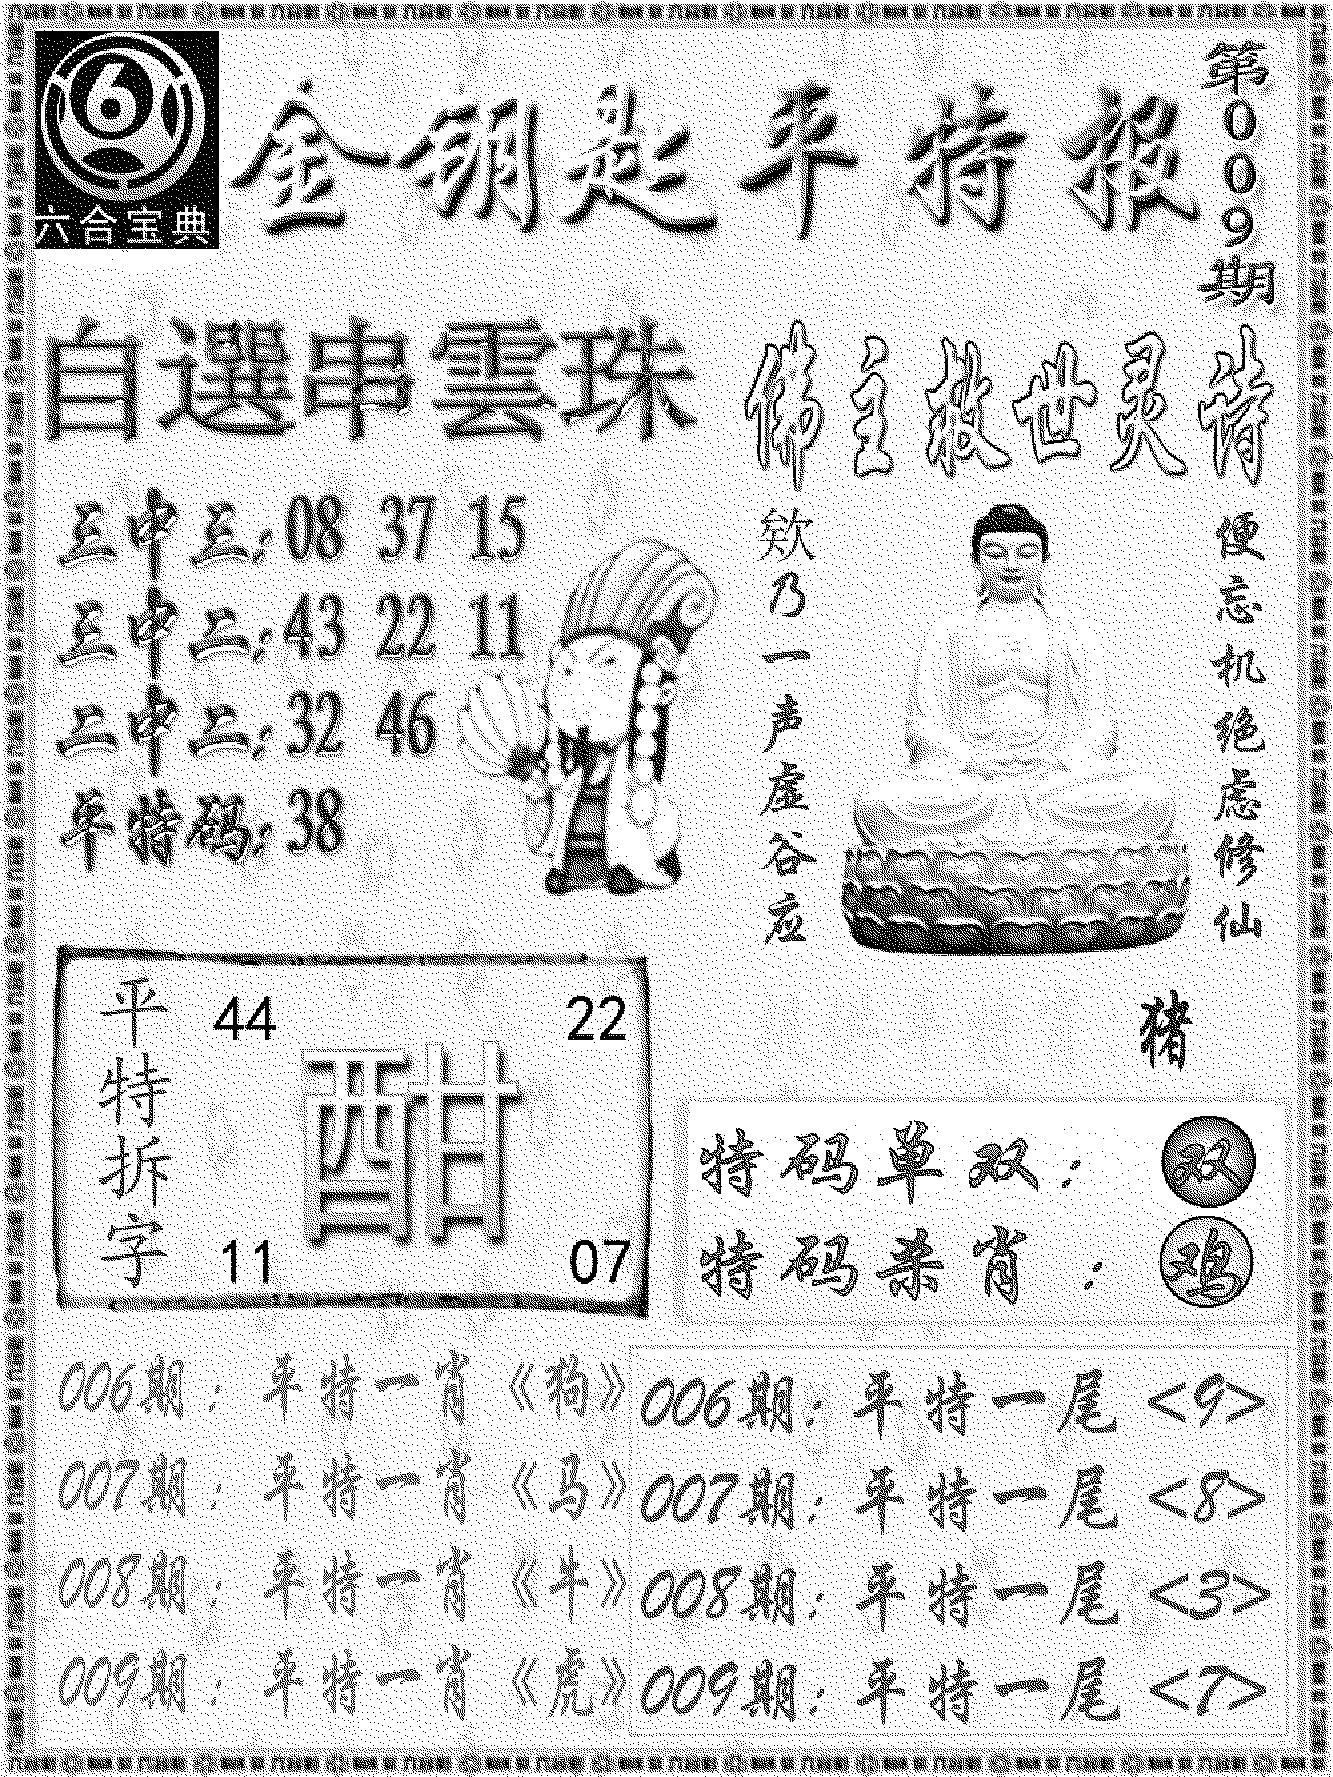 6
六合宝典
金钥匙平特报
第009期
自選串雲珠
三中三:08 37 15
三中二:43 22 11
二中二:32 46
平特码:38
佛主救世灵诗
欸乃一声虚谷应
便忘机绝虑修仙
猪
平特拆字
44 22
酣
11 07
特码单双:双
特码杀肖:鸡
006期:平特一肖《狗》
007期:平特一肖《马》
008期:平特一肖《牛》
009期:平特一肖《虎》
006期:平特一尾<9>
007期:平特一尾<8>
008期:平特一尾<3>
009期:平特一尾<7>